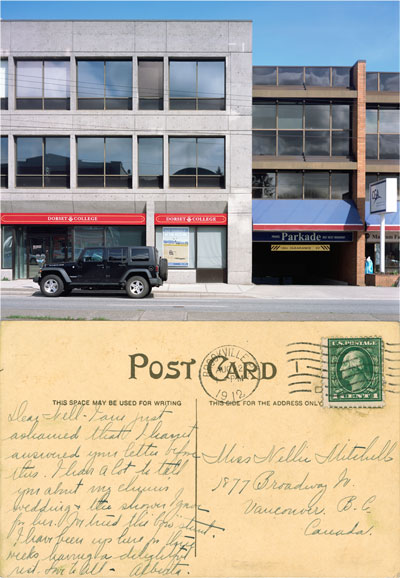 DORSET COLLEGE
DORSET COLLEGE
Parkade
POST CARD
THIS SPACE MAY BE USED FOR WRITING
THIS SIDE FOR THE ADDRESS ONLY
1912
U.S. POSTAGE
1 CENT 1
Dear Nell - I am just
ashamed that I haven't
answered your letter before
this. I have a lot to tell
you about my
wedding & the shower I gave
for her. I've tried this
I have been up here for
weeks having a delightful
rest. Love to All - Alberta.
Miss Nellie Mitchell
1877 Broadway W.
Vancouver. B.C.
Canada.